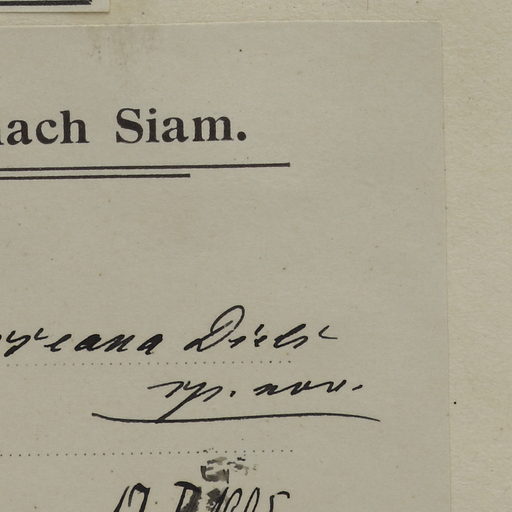 nach Siam.
eana Diels
sp. nov.